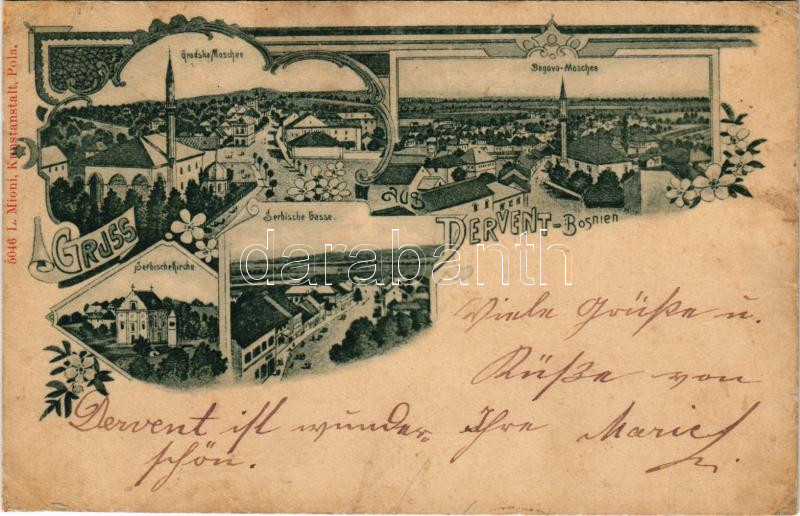 5046 L. Mioni, Kunstanstalt, Pola.
Gradska Moschee
Begova-Moschee
GRUSS
AUS
DERVENT-BOSNIEN
Serbische Gasse.
Serbische Kirche
darabanth
Viele Grüße u.
Küße von
Ihre Marie
Dervent ist wunder-
schön.